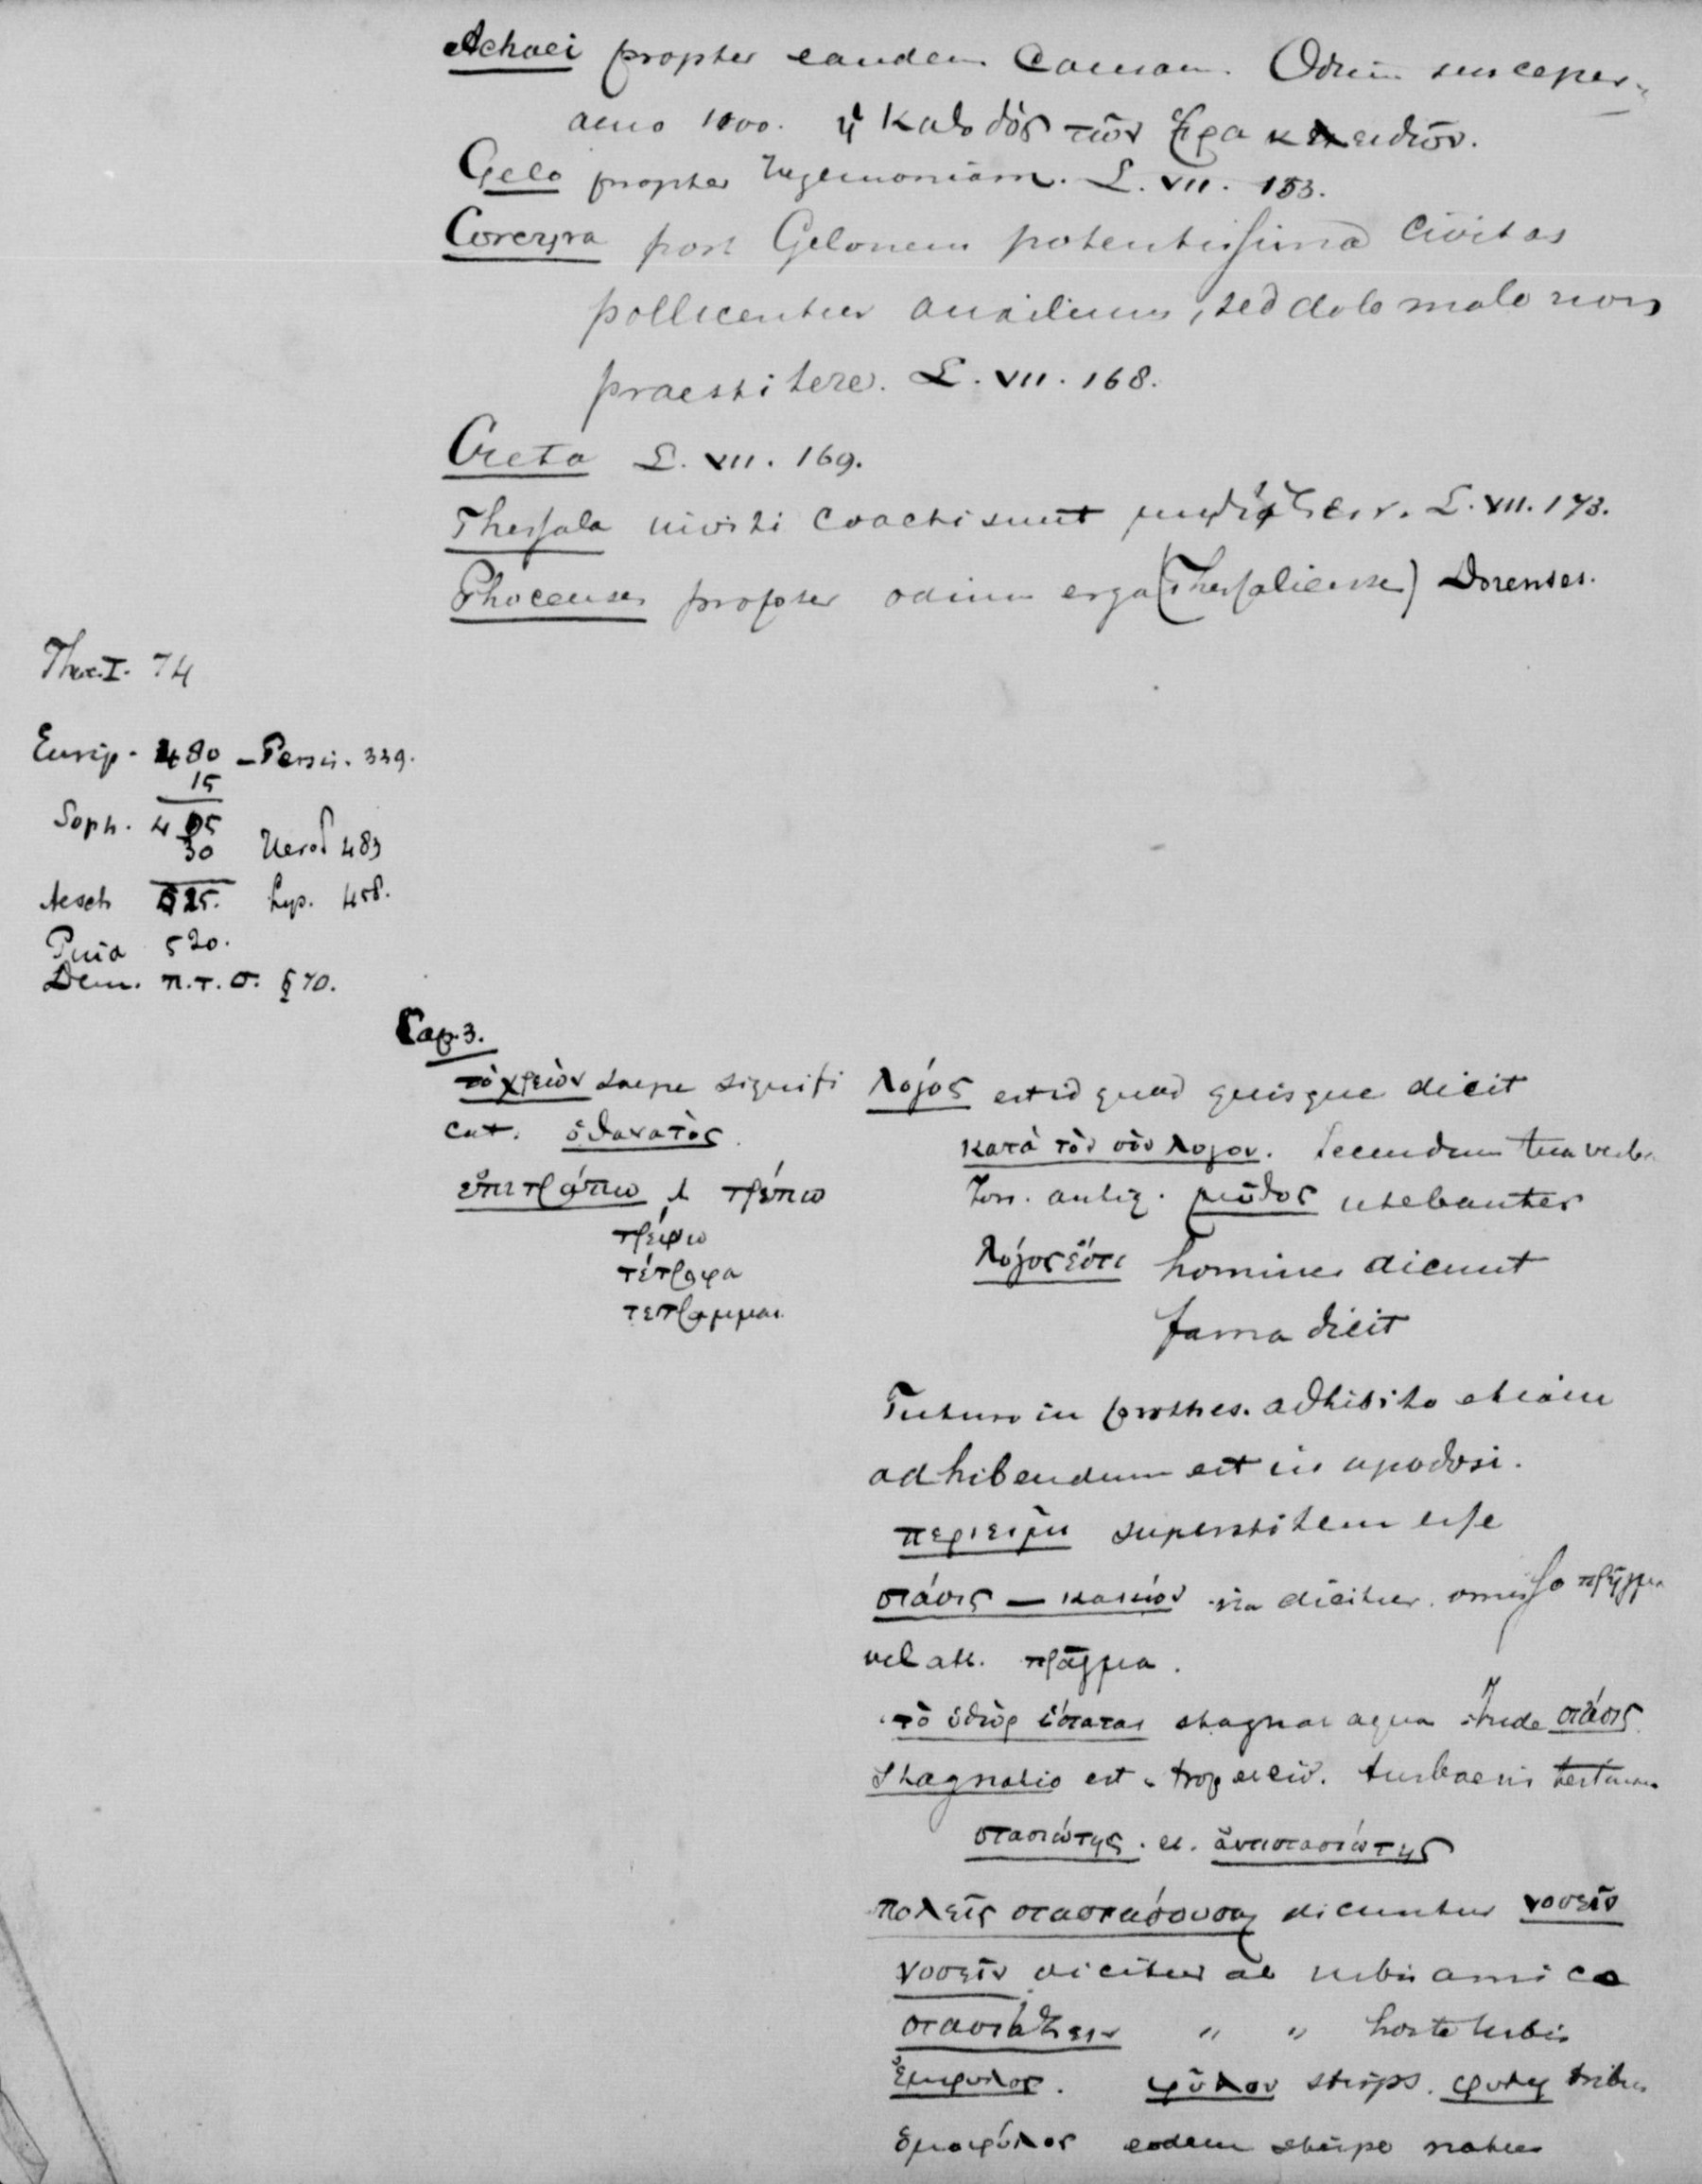 Achaei propter eandem causam. Odium susceper-
anno 1000. ἡ καθοδός τῶν Ἡρακλειδῶν.
Gelo propter hegemoniam. L. VII. 153.
Corcyra post Gelonem potentissima civitas
pollicentur auxilium, sed dolo malo non
praestitere. L. VII. 168.
Creta L. VII. 169.
Thessala inviti coacti sunt μηδίζειν. L. VII. 173.
Phocenses propter odium erga (Thessaliense) Dorenses.
Thuc. I. 74
Eurip. 480 – Persis. 339.
15
Soph. 495
30 Herod 483
Aesch 525. Lys. 458.
520.
Dem. π.τ.σ. § 70.
Cap. 3.
τὸ χρεὼν saepe signifi
cat. ὁ θανατὸς.
ἐπιτράπω τρέπω
τρέψω
τέτροφα
τετραμμαι
λόγος est id quod quisque dicit
κατὰ τὸν σὸν λογον. Secundum tua verba
Ion. antiq. μῦθος utebantur
λόγος ἐστι homines dicunt
fama dicit
Futuro in prothes. adhibito etiam
adhibendum est in apodosi.
περιειμι superstitem esse
στάσις – καινόν dicitur. omisso πρῆγμα
vel att. πρᾶγμα.
τὸ ὑδὼρ ἱσταται stagnat aqua Inde στάσις.
Stagnatio est
στασιώτης. et. ἀντιστασιώτης
πολεῖς στασιαζουσαι dicuntur νοσεῖν
νοσεῖν dicitur ab urbis amico
στασιάζειν " " hoste urbis
ἐμφυλος. φῦλον stirps. φυλη tribus
ὁμοφύλος eodem stirpe natus